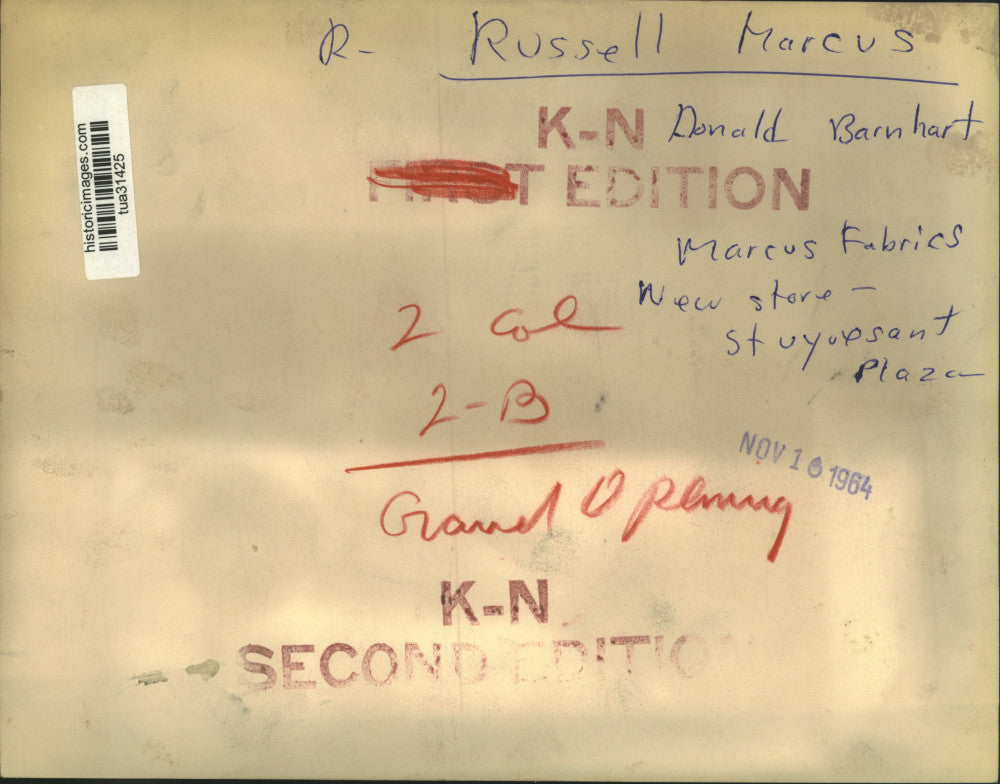 R- Russell Marcus
K-N Donald Barnhart
FIRST EDITION
historicimages.com
tua31425
Marcus Fabrics
New store -
Stuyvesant
Plaza
2 col
2-B
NOV 16 1964
Grand Opening
K-N
SECOND EDITIO